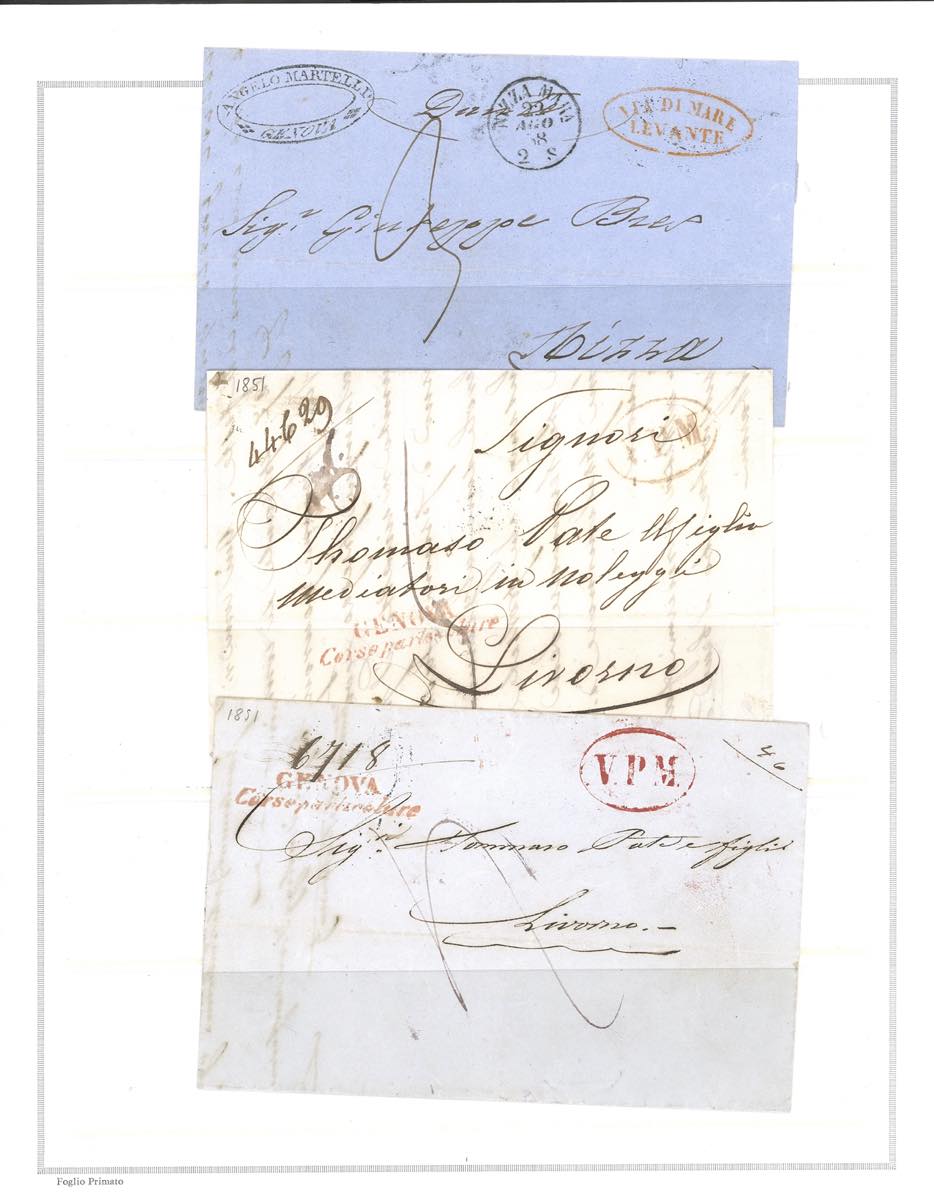 ANGELO MARTELLI
GENOVA
NIZZA MARA
22
AGO
58
2 S
VIE DI MARE
LEVANTE
Sig.r Giuseppe Bres
Nizza
1851
44629
V.P.M
Signori
Thomaso Pate & figlio
Mediatori in Noleggi
GENOVA
Corsoparticolare
Livorno
1851
6718
46
GENOVA
Corsoparticolare
V.P.M.
Sig.ri Tommaso Pate e figli
Livorno.-
Foglio Primato